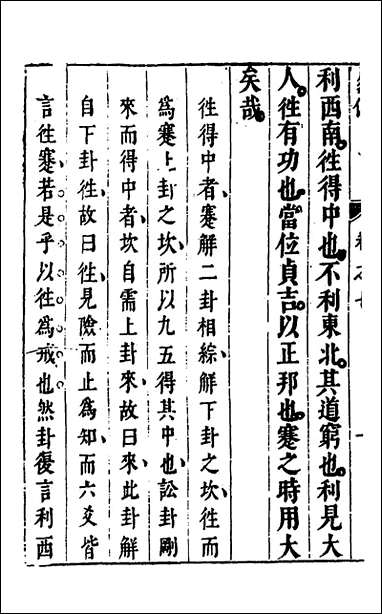 卷之七
利西南。徃得中也。不利東北。其道窮也。利見大
人。徃有功也。當位貞吉。以正邦也。蹇之時用大
矣哉。
徃得中者、蹇解二卦相綜、解下卦之坎、徃而
爲蹇上卦之坎、所以九五得其中也、訟卦剛
來而得中者、坎自需上卦來、故曰來、此卦解
自下卦徃、故曰徃、見險而止爲知、而六爻皆
言徃蹇、若是乎以徃爲戒也。然卦復言利西